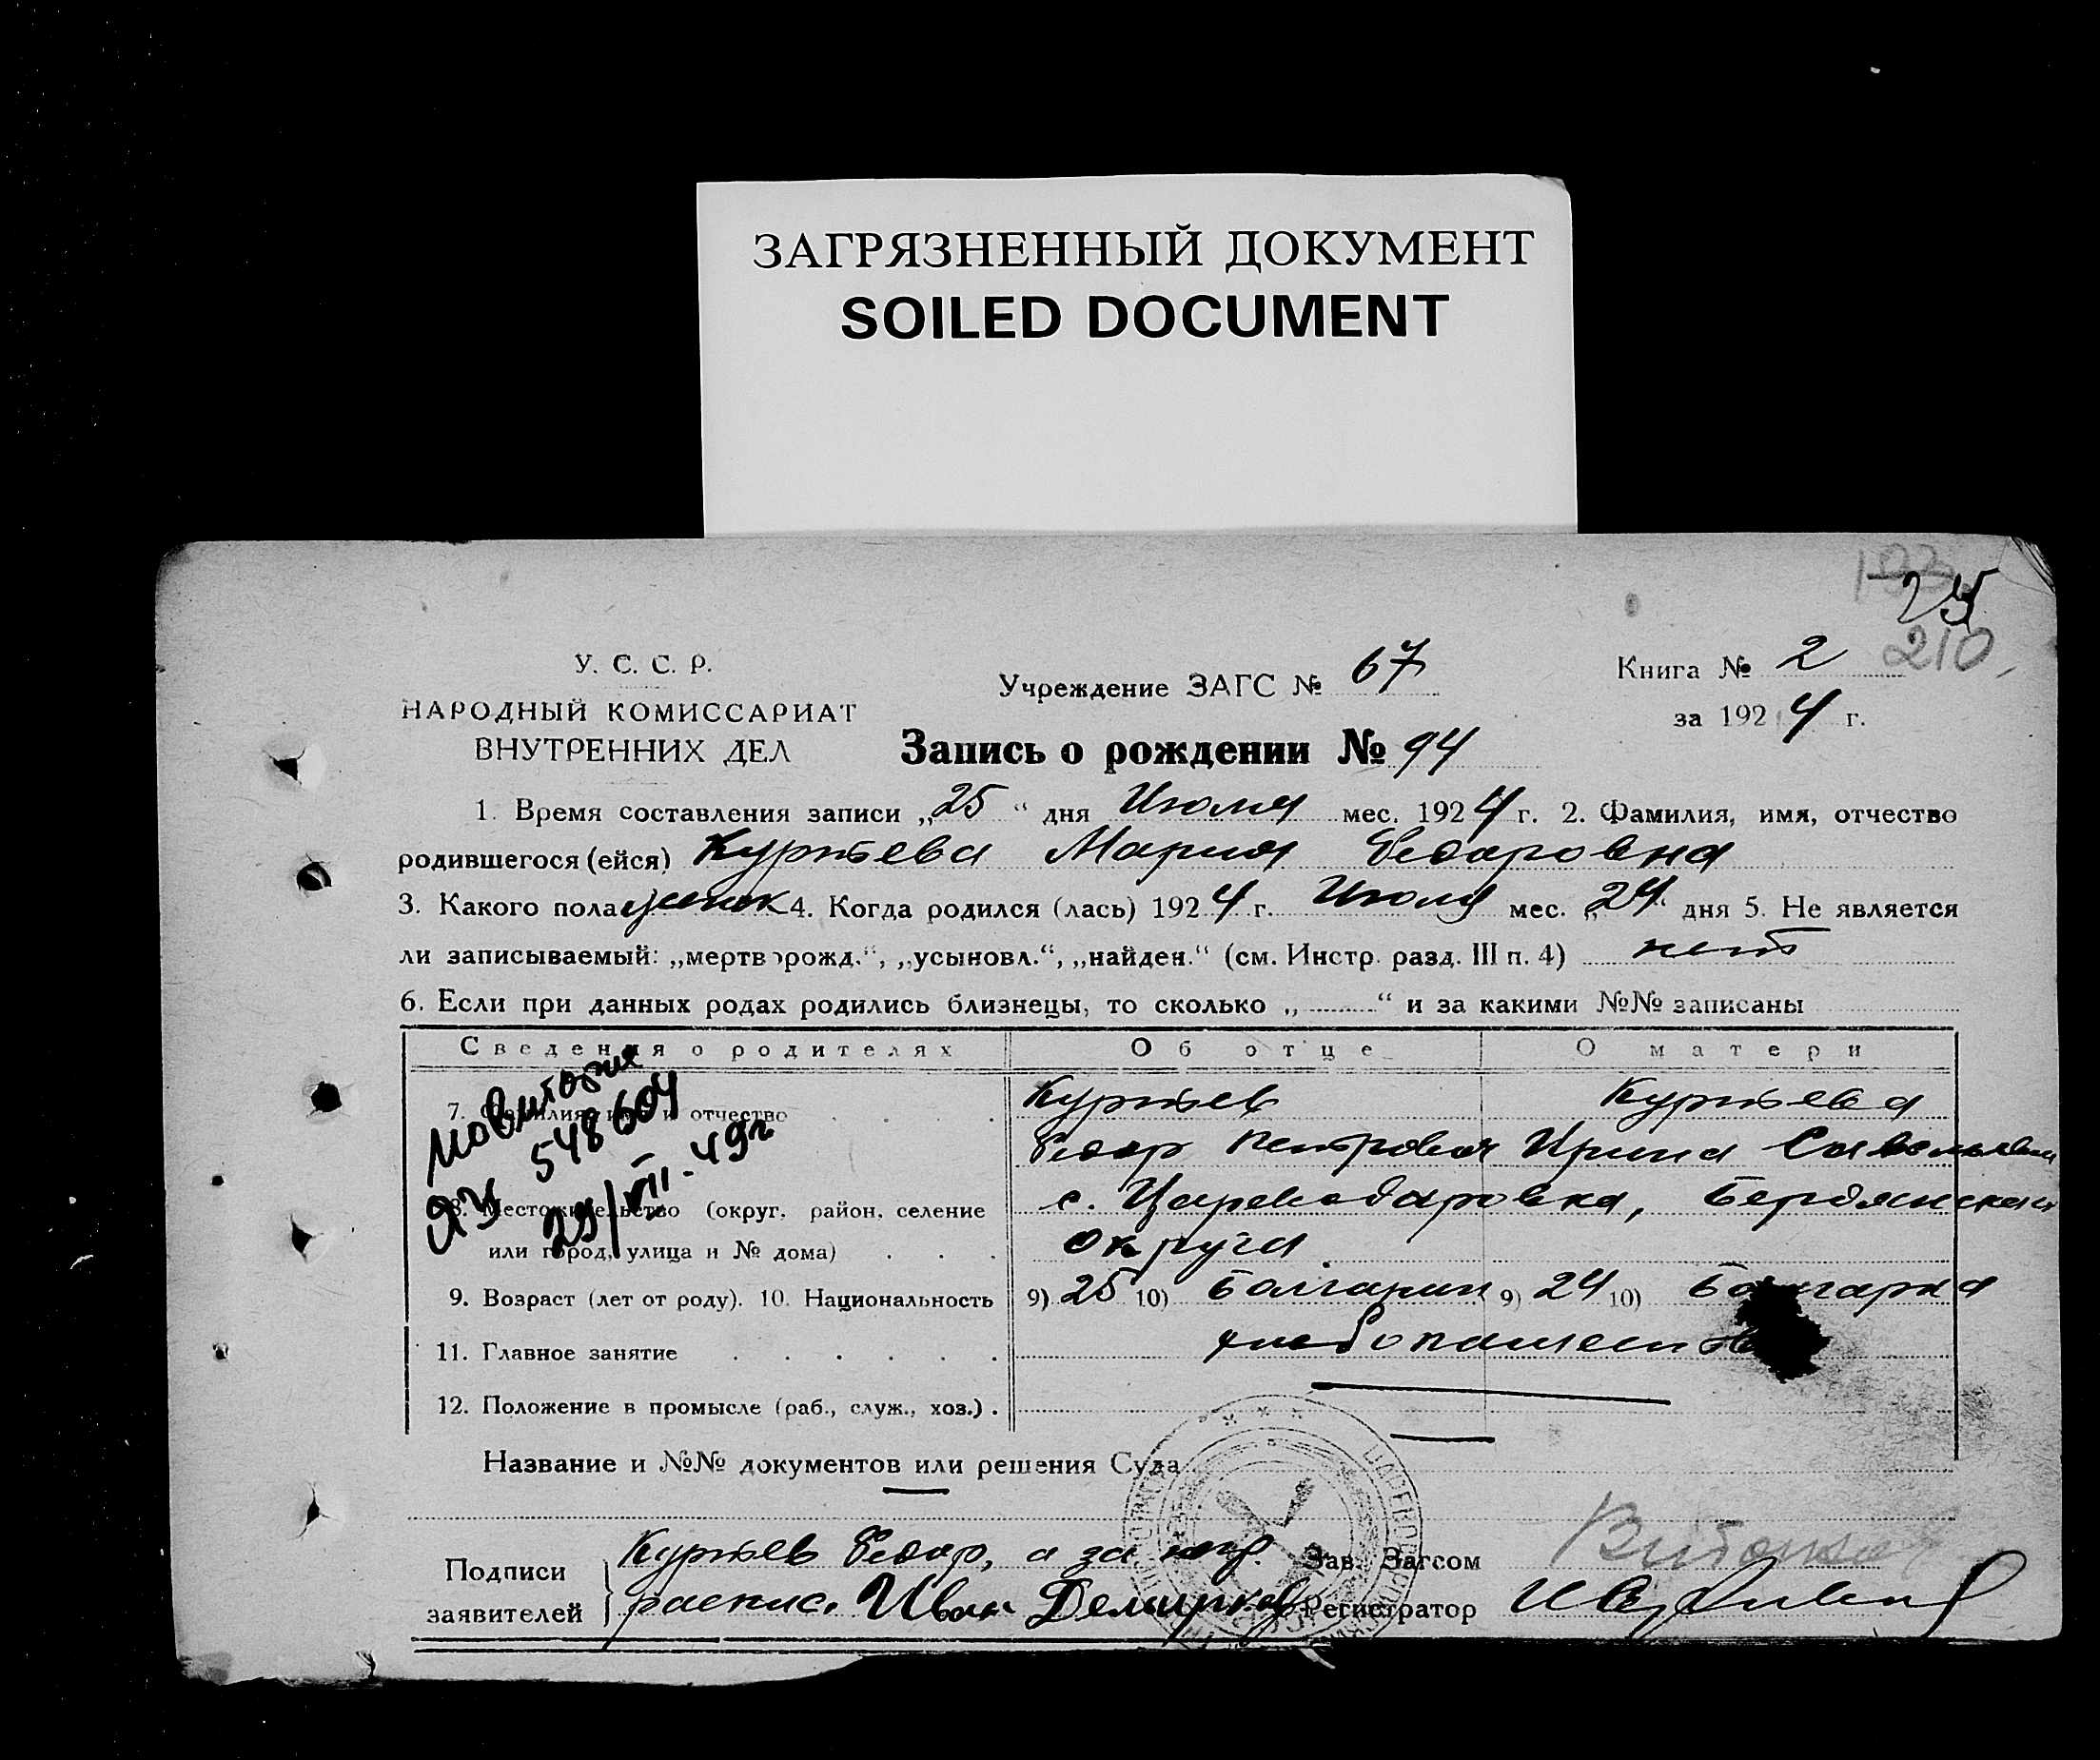 ЗАГРЯЗНЕННЫЙ ДОКУМЕНТ
SOILED DOCUMENT
25
210
У. С. С. Р.
НАРОДНЫЙ КОМИССАРИАТ
ВНУТРЕННИХ ДЕЛ
Учреждение ЗАГС № 67
Книга № 2
за 1924 г.
Запись о рождении № 94
1. Время составления записи „25“ дня Июля мес. 1924 г. 2. Фамилия, имя, отчество
родившегося (ейся) Куртева Мария Федаровна
3. Какого пола женск 4. Когда родился (лась) 1924 г. Июля мес. „24“ дня 5. Не является
ли записываемый: „мертворожд.“, „усыновл.“, „найден.“ (см. Инстр. разд. III п. 4) нет
6. Если при данных родах родились близнецы, то сколько „ “ и за какими №№ записаны
Сведения о родителях Об отце О матери
7. Фамилия, имя и отчество Куртев Куртева
Федор Петрович Ирина
8. Местожительство (округ, район, селение с. Цареводаровка, Бердянскаго
или город, улица и № дома) округа
9. Возраст (лет от роду). 10. Национальность 9) 25 10) Болгарин 9) 24 10) Болгарка
11. Главное занятие хлебопашество
12. Положение в промысле (раб., служ., хоз.)
ЯЗ 548604
29/VII-49г
Название и №№ документов или решения Суда
Подписи заявителей
Куртев Федор, а за негр.
распис. Иван Демирков
Зав. Загсом
Регистратор